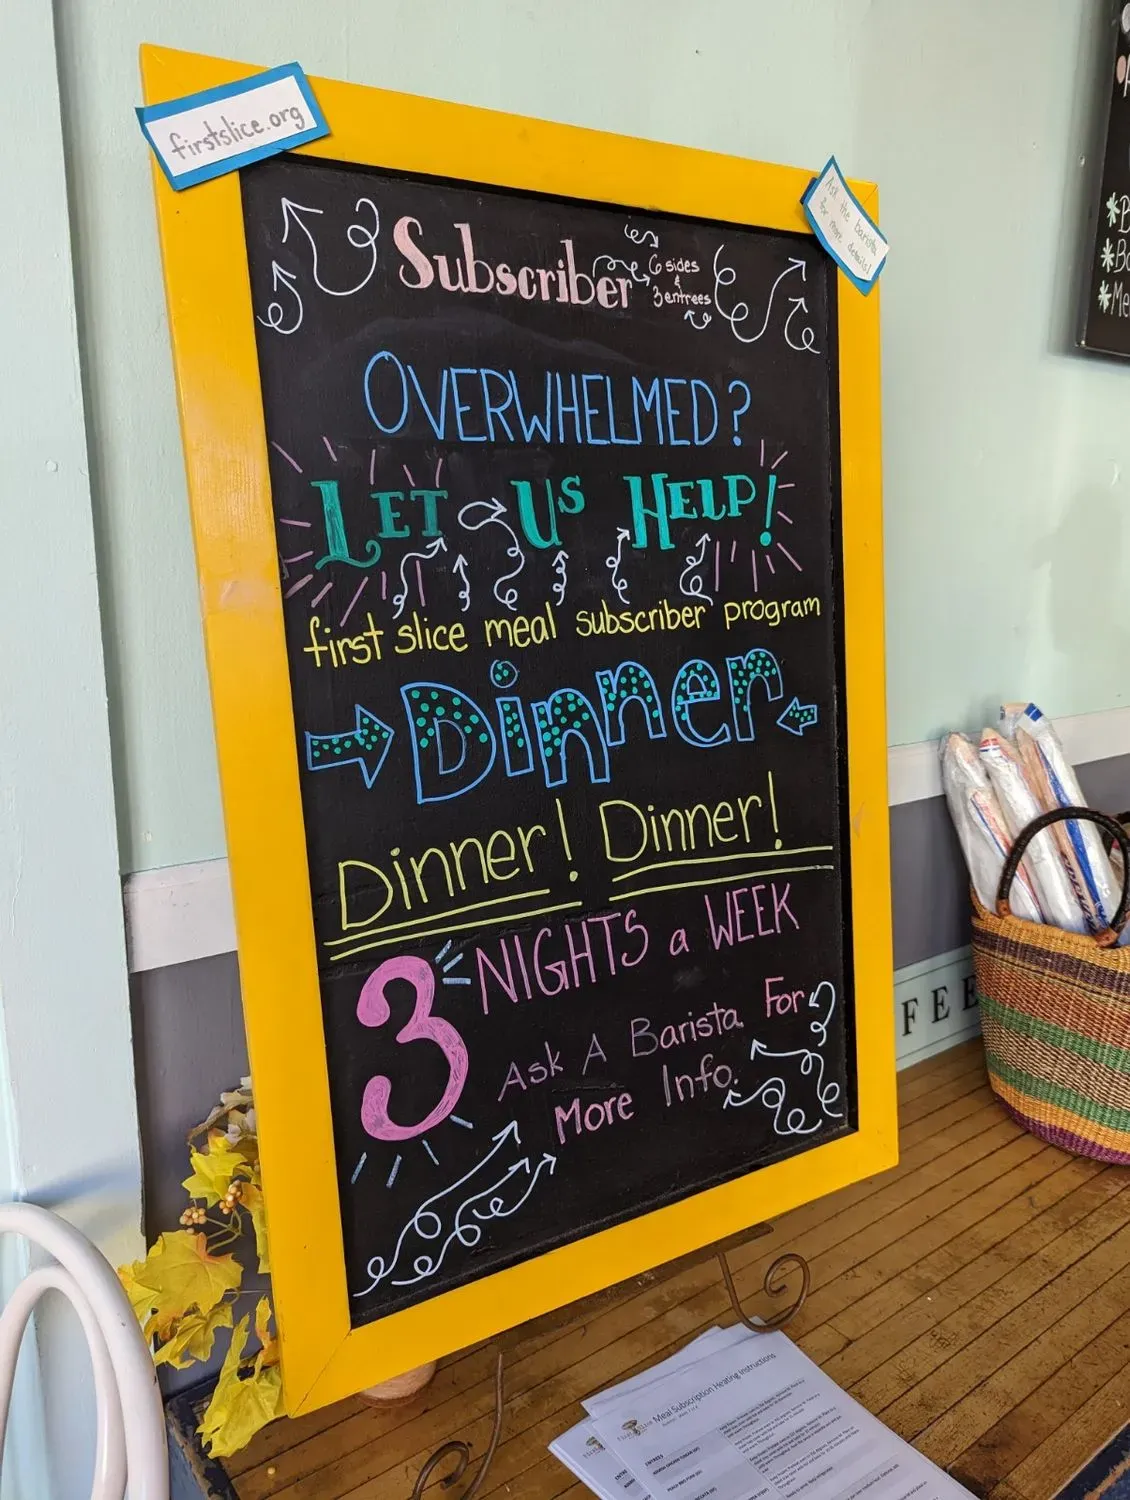 firstslice.org
Ask the barista
for more details!
Subscriber
6 sides
&
3 entrees
OVERWHELMED?
LET US HELP!
first slice meal subscriber program
Dinner
Dinner! Dinner!
3 NIGHTS a WEEK
Ask A Barista For
More Info.
FEE
Meal Subscription Heating Instructions
ENTREES